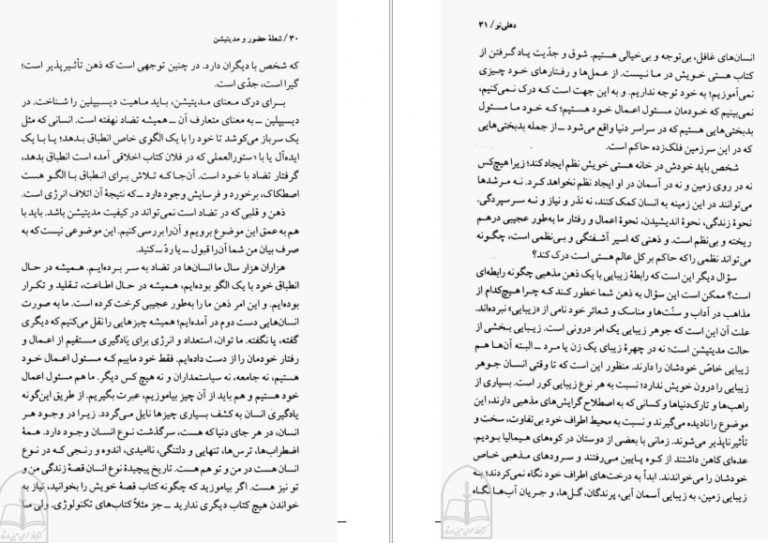 ۳۰ / شعلهٔ حضور و مدیتیشن
که شخص با دیگران دارد. در چنین توجهی است که ذهن تأثیرپذیر است؛
گیرا است، جدّی است.
برای درک معنای مدیتیشن، باید ماهیت دیسیپلین را شناخت. در
دیسیپلین ــ به معنای متعارف آن ــ همیشه تضاد نهفته است. انسانی که مثل
یک سرباز می‌کوشد تا خود را با یک الگوی خاص انطباق بدهد؛ یا با یک
ایده‌آل یا با «دستورالعملی که در فلان کتاب اخلاقی آمده است انطباق بدهد،
گرفتار تضاد با خود است. آن‌جا که تلاش برای انطباق با الگو هست
اصطکاک، برخورد و فرسایش وجود دارد ــ که نتیجهٔ آن اتلاف انرژی است.
ذهن و قلبی که در تضاد است نمی‌تواند در کیفیت مدیتیشن باشد. باید با
هم به عمق این موضوع برویم و آن را بررسی کنیم. این موضوعی نیست که به
صرف بیان من شما آن را قبول ــ یا ردّ ــ کنید.
هزاران هزار سال ما انسان‌ها در تضاد به سر برده‌ایم. همیشه در حال
انطباق خود با یک الگو بوده‌ایم، همیشه در حال اطاعت، تقلید و تکرار
بوده‌ایم. و این امر ذهن ما را به‌طور عجیبی کرخت کرده است. ما به صورت
انسان‌هایی دست دوم در آمده‌ایم؛ همیشه چیزهایی را نقل می‌کنیم که دیگری
گفته، یا نگفته. ما توان، استعداد و انرژی برای یادگیری مستقیم از اعمال و
رفتار خودمان را از دست داده‌ایم. فقط خود ماییم که مسئول اعمال خود
هستیم، نه جامعه، نه سیاستمداران و نه هیچ کس دیگر. ما هم مسئول اعمال
خود هستیم و هم باید از آن چیز بیاموزیم، عبرت بگیریم. از طریق این‌گونه
یادگیری انسان به کشف بسیاری چیزها نایل می‌گردد. زیرا در وجود هر
انسان، در هر جای دنیا که هست، سرگذشت نوع انسان وجود دارد. همهٔ
اضطراب‌ها، ترس‌ها، تنهایی و دلتنگی، ناامیدی، اندوه و رنجی که در نوع
انسان هست در من و تو هم هست. تاریخ پیچیدهٔ نوع انسان قصهٔ زندگی من و
تو نیز هست. اگر بیاموزید که چگونه کتاب قصهٔ خویش را بخوانید، نیاز به
خواندن هیچ کتاب دیگری ندارید ــ جز مثلاً کتاب‌های تکنولوژی. ولی ما
دهلی‌نو / ۳۱
انسان‌های غافل، بی‌توجه و بی‌خیالی هستیم. شوق و جدّیت یاد گرفتن از
کتاب هستی خویش در ما نیست. از عمل‌ها و رفتارهای خود چیزی
نمی‌آموزیم؛ به خود توجه نداریم. و به این جهت است که درک نمی‌کنیم،
نمی‌بینیم که خودمان مسئول اعمال خود هستیم؛ که خود ما مسئول
بدبختی‌هایی هستیم که در سراسر دنیا واقع می‌شود ــ از جمله بدبختی‌هایی
که در این سرزمین فلک‌زده حاکم است.
شخص باید خودش در خانه هستی خویش نظم ایجاد کند؛ زیرا هیچ‌کس
نه در روی زمین و نه در آسمان در او ایجاد نظم نخواهد کرد. نه مرشدها
می‌توانند در این زمینه به انسان کمک کنند، نه نذر و نیاز و نه سرسپردگی.
نحوهٔ زندگی، نحوهٔ اندیشیدن، نحوهٔ اعمال و رفتار ما به‌طور عجیبی درهم
ریخته و بی‌نظم است. و ذهنی که اسیر آشفتگی و بی‌نظمی است، چگونه
می‌تواند نظمی را که حاکم بر کل عالم هستی است درک کند؟
سؤال دیگر این است که رابطهٔ زیبایی با یک ذهن مذهبی چگونه رابطه‌ای
است؟ ممکن است این سؤال به ذهن شما خطور کند که چرا هیچ‌کدام از
مذاهب در آداب و سنّت‌ها و مناسک و شعائر خود نامی از «زیبایی» نبرده‌اند.
علت آن این است که جوهر زیبایی یک امر درونی است. زیبایی بخشی از
حالت مدیتیشن است؛ نه در چهرهٔ زیبای یک زن یا مرد ــ البته آن‌ها هم
زیبایی خاصّ خودشان را دارند. منظور این است که تا وقتی انسان جوهر
زیبایی را درون خویش ندارد؛ نسبت به هر نوع زیبایی کور است. بسیاری از
راهب‌ها و تارک‌دنیاها و کسانی که به اصطلاح گرایش‌های مذهبی دارند، این
موضوع را نادیده می‌گیرند و نسبت به محیط اطراف خود بی‌تفاوت، سخت و
تأثیرناپذیر می‌شوند. زمانی با بعضی از دوستان در کوه‌های هیمالیا بودیم.
عده‌ای کاهن داشتند از کوه پایین می‌رفتند و سرودهای مذهبی خاص
خودشان را می‌خواندند. ابداً به درخت‌های اطراف خود نگاه نمی‌کردند؛ به
زیبایی زمین، به زیبایی آسمان آبی، پرندگان، گل‌ها، و جریان آب‌ها نگاه